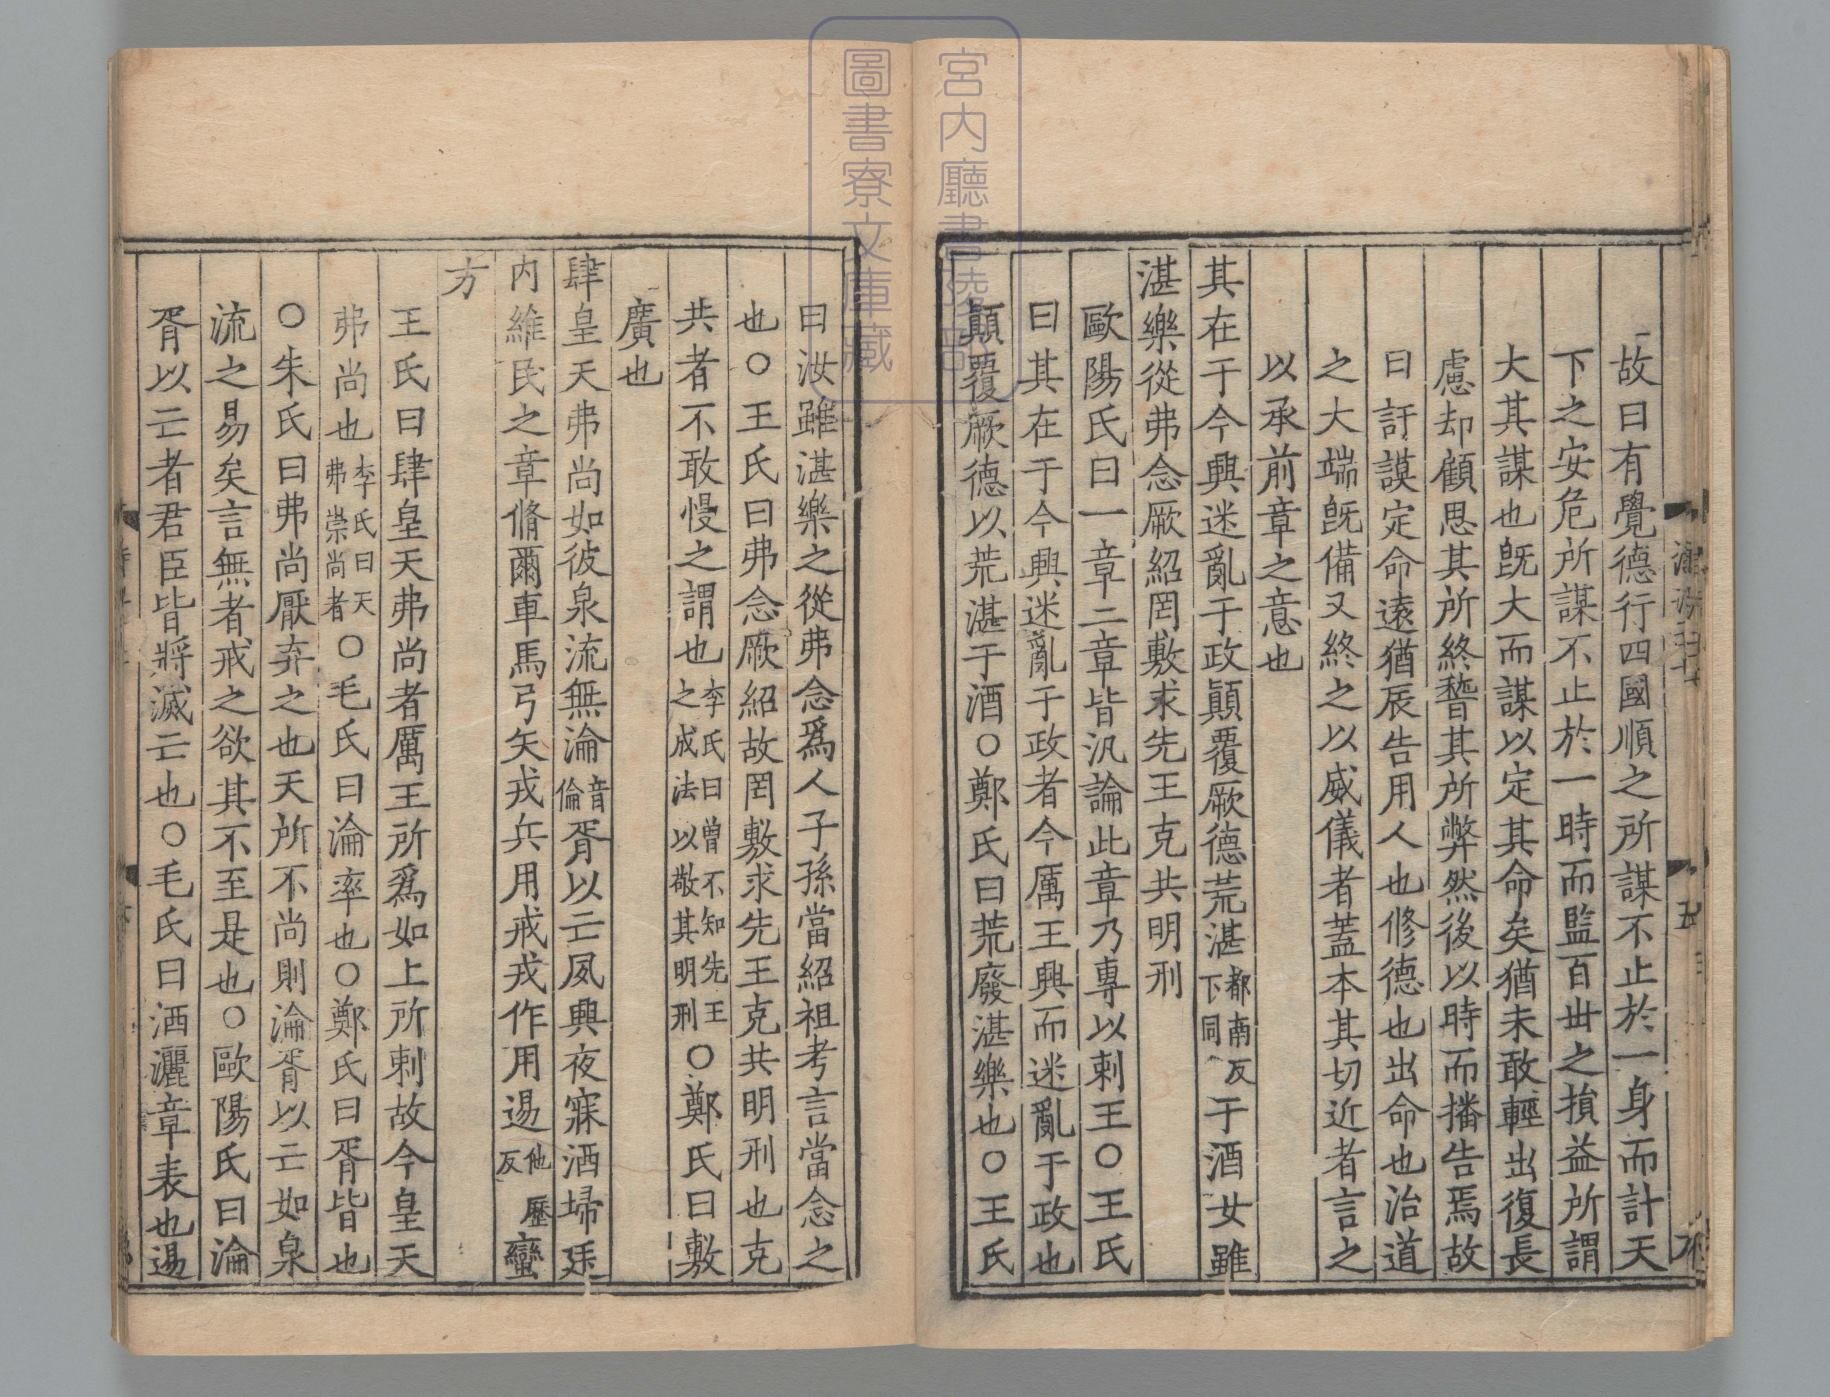 故曰有覺德行四國順之所謀不止於一身而計天
下之安危所謀不止於一時而監百世之損益所謂
大其謀也旣大而謀以定其命矣猶未敢輕出復長
慮却顧思其所終稽其所弊然後以時而播告焉故
曰訏謨定命遠猶辰告用人也修德也出命也治道
之大端旣備又終之以威儀者蓋本其切近者言之
以承前章之意也
其在于今興迷亂于政顛覆厥德荒湛都南反下同于酒女雖
湛樂從弗念厥紹罔敷求先王克共明刑
歐陽氏曰一章二章皆汎論此章乃專以刺王○王氏
曰其在于今興迷亂于政者今厲王興而迷亂于政也
顛覆厥德以荒湛于酒○鄭氏曰荒廢湛樂也○王氏
曰汝雖湛樂之從弗念爲人子孫當紹祖考言當念之
也○王氏曰弗念厥紹故罔敷求先王克共明刑也克
共者不敢慢之謂也李氏曰曾不知先王之成法以敬其明刑○鄭氏曰敷
廣也
肆皇天弗尚如彼泉流無淪音倫胥以亡夙興夜寐洒埽廷
内維民之章脩爾車馬弓矢戎兵用戒戎作用逷他歷反蠻
方
王氏曰肆皇天弗尚者厲王所爲如上所刺故今皇天
弗尚也李氏曰天弗崇尚者○毛氏曰淪率也○鄭氏曰胥皆也
○朱氏曰弗尚厭弃之也天所不尚則淪胥以亡如泉
流之易矣言無者戒之欲其不至是也○歐陽氏曰淪
胥以亡者君臣皆將滅亡也○毛氏曰洒灑章表也逷
宮内廳書陵部
圖書寮文庫藏